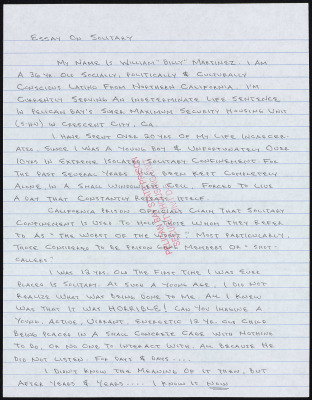 Essay On Solitary
My Name Is William "Billy" Martinez. I am
A 36 yr. old Socially, Politically & Culturally
Conscious Latino From Northern California. I'm
Currently Serving An Indeterminate Life Sentence
In Pelican Bay's Super Maximum Security Housing Unit
(SHU) in Crescent City, Ca.
I Have Spent Over 20 yrs of My Life Incarcer-
ated. Since I Was A Young Boy & Unfortunately Over
10 yrs In Extreme Isolated Solitary Confinement. For
The Past Several Years I've Been Kept Completely
Alone In A Small Windowless Cell. Forced To Live
A Day That Constantly Repeats Itself.
California Prison Officials Claim That Solitary
Confinement Is Used To House Those Whom They Refer
To As "The Worst Of The Worst". Most Particularly,
Those Considered To Be Prison Gang Members Or "Shot-
Callers"
I Was 12 yrs. Old The First Time I Was Ever
Placed In Solitary. At Such A Young Age, I Did Not
Realize What Was Being Done To Me. All I Knew
Was That It Was HORRIBLE! Can You Imagine A
Young, Active, Vibrant, Energetic 12 Yr. Old Child
Being Placed In A Small Concrete Cage With Nothing
To Do, Or No One To Interact With. All Because He
Did Not Listen. For Days & Days....
I Didn't Know The Meaning Of It Then, But
After Years & Years.... I Know It Now